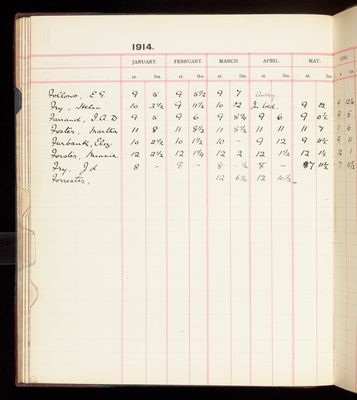 1914.
JANUARY. FEBRUARY MARCH. APRIL. MAY. JUNE
st. lbs. st. lbs. st. lbs. st. lbs. st. lbs. st. lbs.
Follows, E.G. 9 5 9 5½ 9 7 Away
Fry, Helen 10 3½ 9 11½ 10 12 In bed. 9 12 9 12½
Farrand, I.A.D 9 5 9 6 9 8¼ 9 6 9 0½ 9 5
Foster, Martha 11 8 11 8½ 11 8½ 11 11 11 7 11 6
Fairbank, Eliz 10 2½ 10 1½ 10 - 9 12 9 11½ 9 11
Forster, Minnie 12 2½ 12 1¼ 12 2 12 1½ 12 1½ 12 1
Fry, J.L. 8 - 8 - 8 - ½ 8 - 7 11½ 7 11½
Forrester, 12 6½ 12 10½